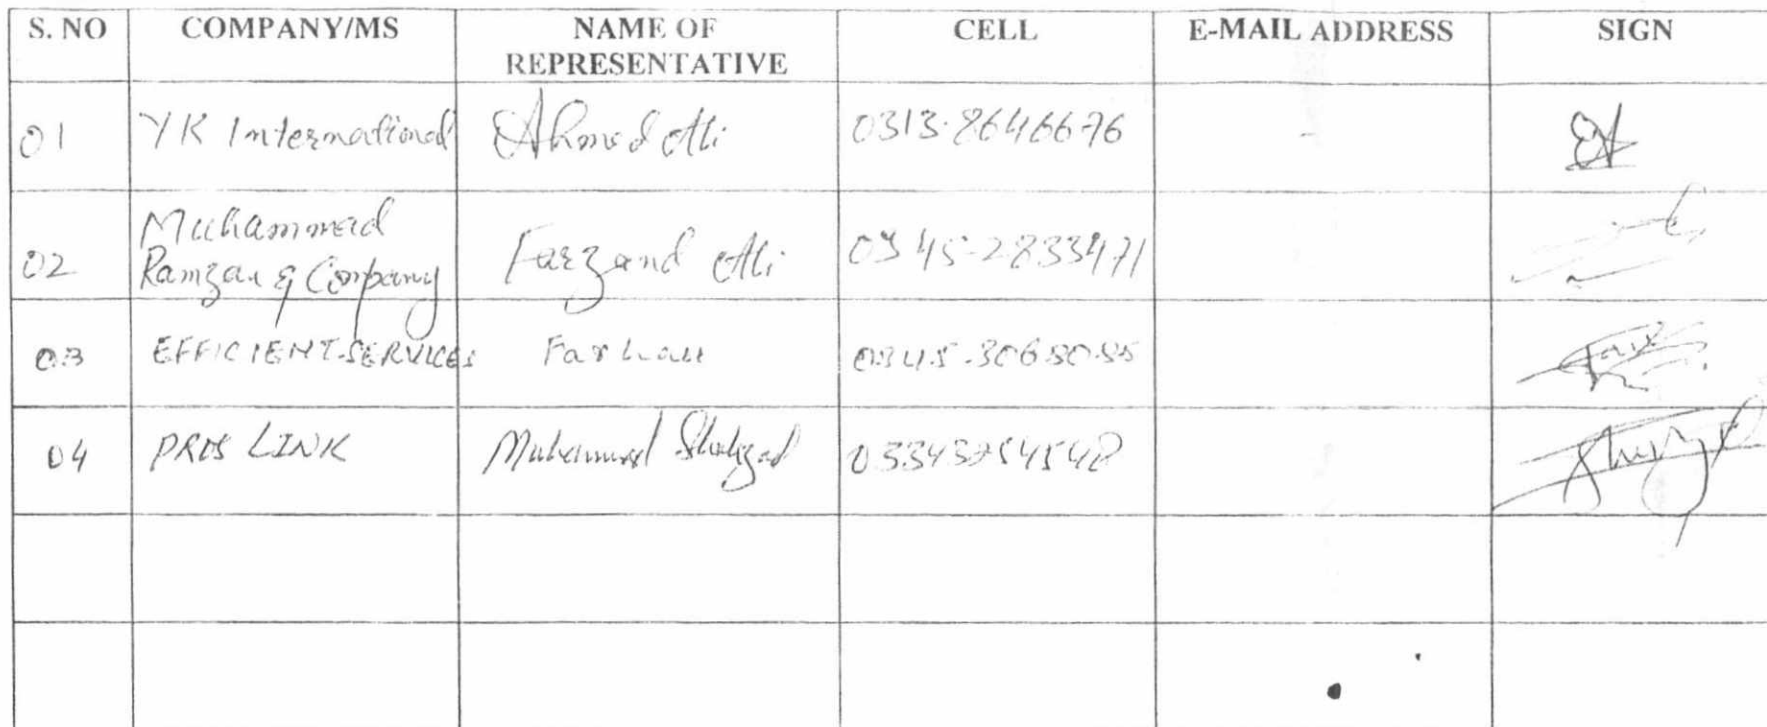 S. NO COMPANY/MS NAME OF REPRESENTATIVE CELL E-MAIL ADDRESS SIGN
01 YK International Ahmed Ali 0313-8646676 -
02 Muhammad Ramzan & Company Farzand Ali 0345-2833471
03 EFFICIENT-SERVICES Farhan 0345-3068085
04 LINK Muhammad Shahzad